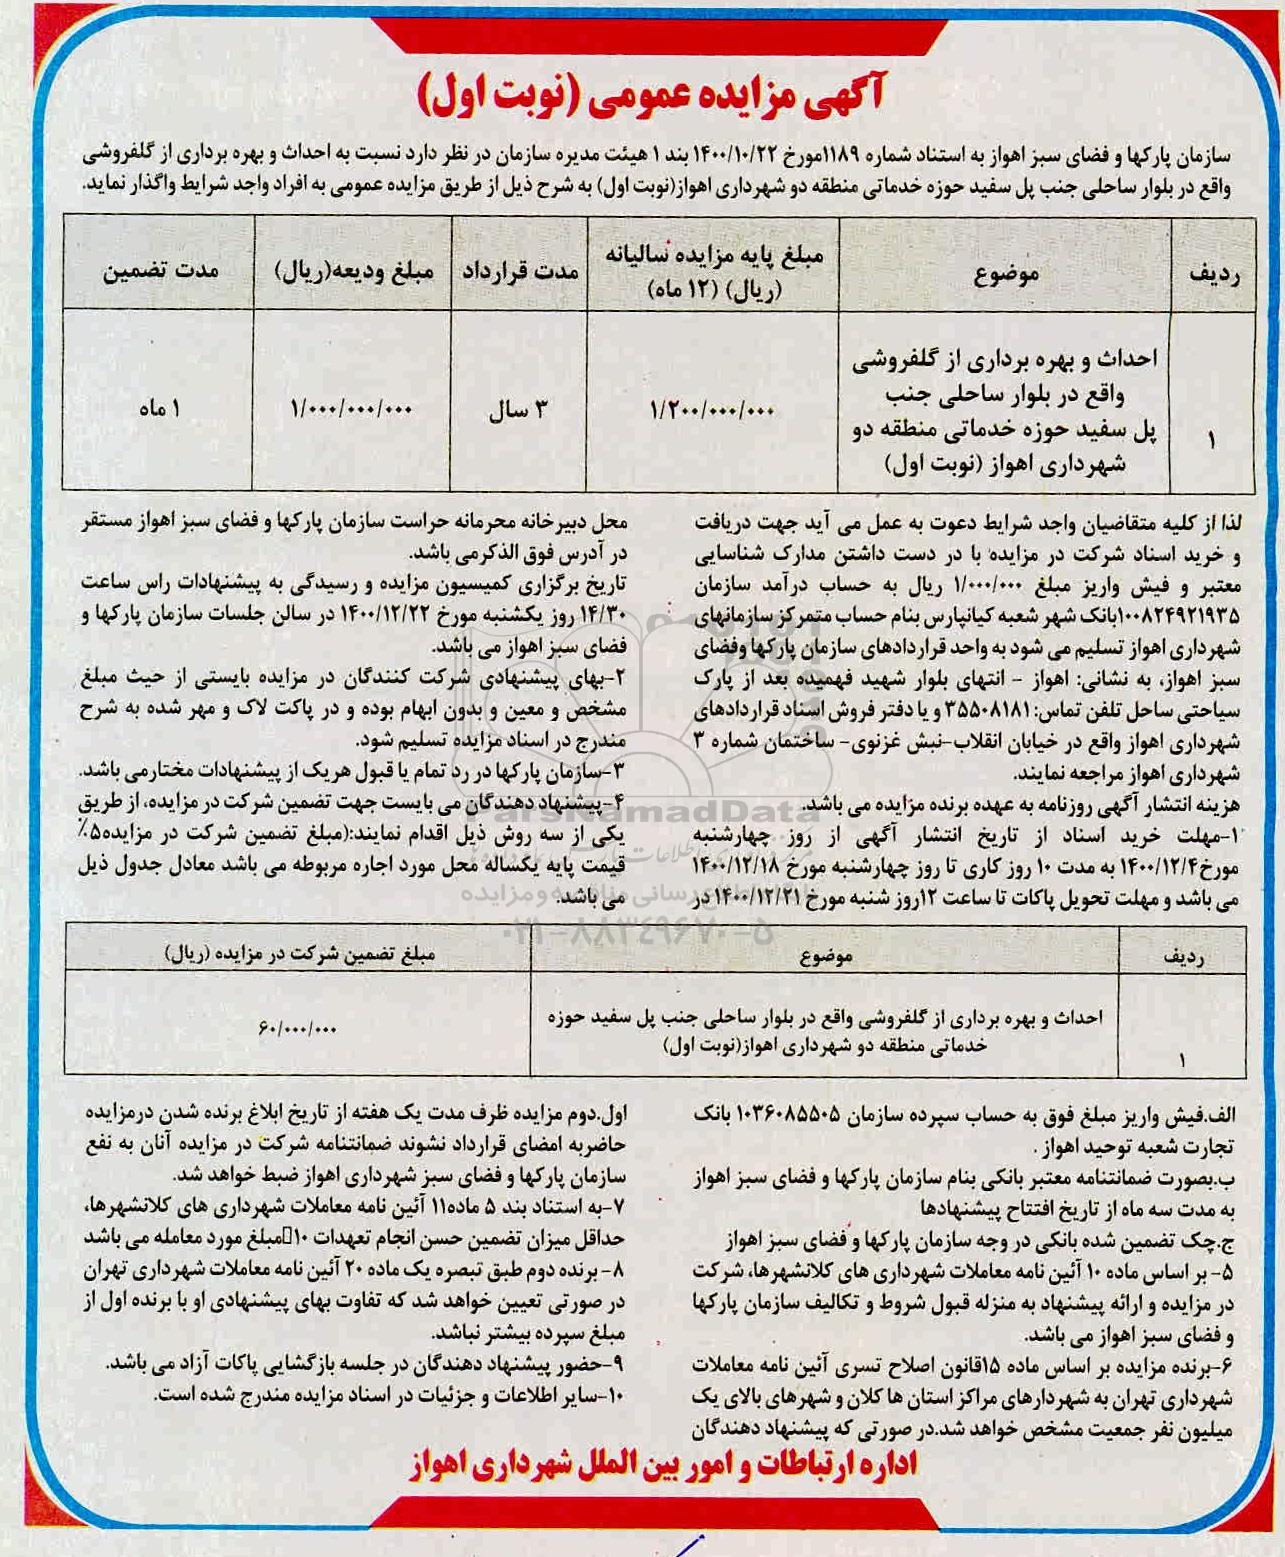 آگهی مزایده عمومی (نوبت اول)
سازمان پارکها و فضای سبز اهواز به استناد شماره ۱۱۸۹مورخ ۱۴۰۰/۱۰/۲۲ بند ۱ هیئت مدیره سازمان در نظر دارد نسبت به احداث و بهره برداری از گلفروشی
واقع در بلوار ساحلی جنب پل سفید حوزه خدماتی منطقه دو شهرداری اهواز(نوبت اول) به شرح ذیل از طریق مزایده عمومی به افراد واجد شرایط واگذار نماید.
ردیف
موضوع
مبلغ پایه مزایده سالیانه
(ریال) (۱۲ ماه)
مدت قرارداد
مبلغ ودیعه(ریال)
مدت تضمین
۱
احداث و بهره برداری از گلفروشی
واقع در بلوار ساحلی جنب
پل سفید حوزه خدماتی منطقه دو
شهرداری اهواز (نوبت اول)
۱/۲۰۰/۰۰۰/۰۰۰
۳ سال
۱/۰۰۰/۰۰۰/۰۰۰
۱ ماه
لذا از کلیه متقاضیان واجد شرایط دعوت به عمل می آید جهت دریافت
و خرید اسناد شرکت در مزایده با در دست داشتن مدارک شناسایی
معتبر و فیش واریز مبلغ ۱/۰۰۰/۰۰۰ ریال به حساب درآمد سازمان
۱۰۰۸۲۴۹۲۱۹۳۵بانک شهر شعبه کیانپارس بنام حساب متمرکز سازمانهای
شهرداری اهواز تسلیم می شود به واحد قراردادهای سازمان پارکها وفضای
سبز اهواز، به نشانی: اهواز - انتهای بلوار شهید فهمیده بعد از پارک
سیاحتی ساحل تلفن تماس: ۳۵۵۰۸۱۸۱ و یا دفتر فروش اسناد قراردادهای
شهرداری اهواز واقع در خیابان انقلاب-نبش غزنوی- ساختمان شماره ۳
شهرداری اهواز مراجعه نمایند.
هزینه انتشار آگهی روزنامه به عهده برنده مزایده می باشد.
۱-مهلت خرید اسناد از تاریخ انتشار آگهی از روز چهارشنبه
مورخ۱۴۰۰/۱۲/۴ به مدت ۱۰ روز کاری تا روز چهارشنبه مورخ ۱۴۰۰/۱۲/۱۸
می باشد و مهلت تحویل پاکات تا ساعت ۱۲روز شنبه مورخ ۱۴۰۰/۱۲/۲۱ در
محل دبیرخانه محرمانه حراست سازمان پارکها و فضای سبز اهواز مستقر
در آدرس فوق الذکرمی باشد.
تاریخ برگزاری کمیسیون مزایده و رسیدگی به پیشنهادات راس ساعت
۱۴/۳۰ روز یکشنبه مورخ ۱۴۰۰/۱۲/۲۲ در سالن جلسات سازمان پارکها و
فضای سبز اهواز می باشد.
۲-بهای پیشنهادی شرکت کنندگان در مزایده بایستی از حیث مبلغ
مشخص و معین و بدون ابهام بوده و در پاکت لاک و مهر شده به شرح
مندرج در اسناد مزایده تسلیم شود.
۳-سازمان پارکها در رد تمام یا قبول هریک از پیشنهادات مختارمی باشد.
۴-پیشنهاد دهندگان می بایست جهت تضمین شرکت در مزایده، از طریق
یکی از سه روش ذیل اقدام نمایند:(مبلغ تضمین شرکت در مزایده۵٪
قیمت پایه یکساله محل مورد اجاره مربوطه می باشد معادل جدول ذیل
می باشد.
ParsNamadData
۰۲۱-۸۸۳۴۹۶۷۰-۵
ردیف
موضوع
مبلغ تضمین شرکت در مزایده (ریال)
۱
احداث و بهره برداری از گلفروشی واقع در بلوار ساحلی جنب پل سفید حوزه
خدماتی منطقه دو شهرداری اهواز(نوبت اول)
۶۰/۰۰۰/۰۰۰
الف.فیش واریز مبلغ فوق به حساب سپرده سازمان ۱۰۳۶۰۸۵۵۰۵ بانک
تجارت شعبه توحید اهواز .
ب.بصورت ضمانتنامه معتبر بانکی بنام سازمان پارکها و فضای سبز اهواز
به مدت سه ماه از تاریخ افتتاح پیشنهادها
ج.چک تضمین شده بانکی در وجه سازمان پارکها و فضای سبز اهواز
۵- بر اساس ماده ۱۰ آئین نامه معاملات شهرداری های کلانشهرها، شرکت
در مزایده و ارائه پیشنهاد به منزله قبول شروط و تکالیف سازمان پارکها
و فضای سبز اهواز می باشد.
۶-برنده مزایده بر اساس ماده ۱۵قانون اصلاح تسری آئین نامه معاملات
شهرداری تهران به شهردارهای مراکز استان ها کلان و شهرهای بالای یک
میلیون نفر جمعیت مشخص خواهد شد.در صورتی که پیشنهاد دهندگان
اول.دوم مزایده ظرف مدت یک هفته از تاریخ ابلاغ برنده شدن درمزایده
حاضربه امضای قرارداد نشوند ضمانتنامه شرکت در مزایده آنان به نفع
سازمان پارکها و فضای سبز شهرداری اهواز ضبط خواهد شد.
۷-به استناد بند ۵ ماده۱۱ آئین نامه معاملات شهرداری های کلانشهرها،
حداقل میزان تضمین حسن انجام تعهدات ۱۰▯مبلغ مورد معامله می باشد
۸- برنده دوم طبق تبصره یک ماده ۲۰ آئین نامه معاملات شهرداری تهران
در صورتی تعیین خواهد شد که تفاوت بهای پیشنهادی او با برنده اول از
مبلغ سپرده بیشتر نباشد.
۹-حضور پیشنهاد دهندگان در جلسه بازگشایی پاکات آزاد می باشد.
۱۰-سایر اطلاعات و جزئیات در اسناد مزایده مندرج شده است.
اداره ارتباطات و امور بین الملل شهرداری اهواز